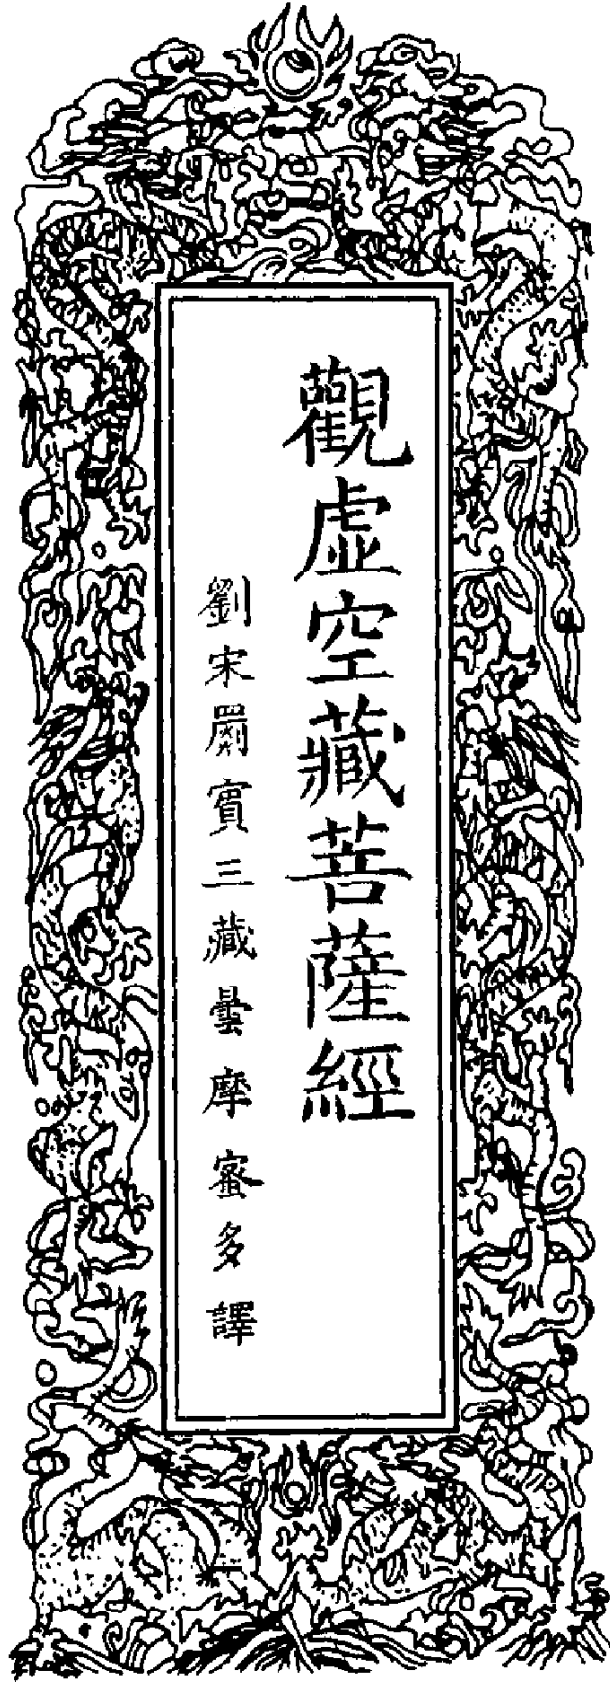 觀虛空藏菩薩經
劉宋罽賓三藏曇摩蜜多譯